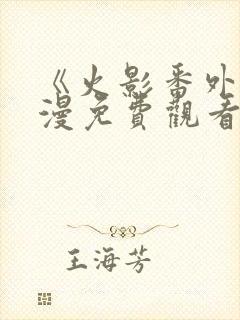 《火影番外
漫免費觀看
王海芳